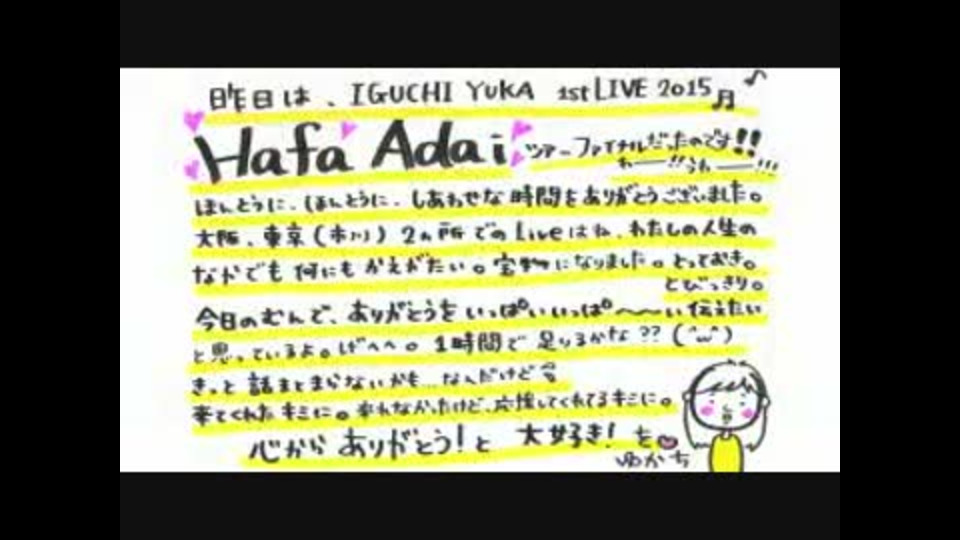 昨日は、IGUCHI YUKA 1st LIVE 2015♬
Hafa Adai ツアーファイナルだったのです!!
わー!!うわー!!!
ほんとうに、ほんとうに、しあわせな時間をありがとうございました。
大阪、東京(市川)2ヵ所でのLiveはね、わたしの人生の
なかでも何にもかえがたい。宝物になりました。とっておき。
とびっきり。
今日のむんで、ありがとうをいっぱいいっぱい〜〜い伝えたい
と思っているよ。げへへ。1時間で足りるかな??(^ω^)
きっと話まとまらないかも…なんだけど
来てくれたキミに。来れなかったけど、応援してくれてるキミに。
心からありがとう!と 大好き!を
ゆかち